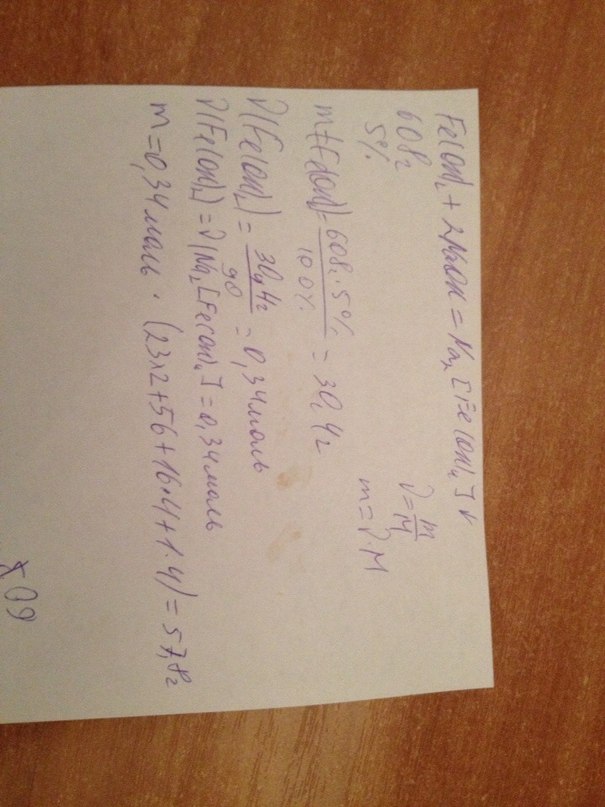 Fe(OH)₂ + 2NaOH = Na₂[Fe(OH)₄] v
608г
5%
ν = m/M
m = ν·M
m(Fe(OH)₂) = 608·5%/100% = 30,4г
ν(Fe(OH)₂) = 30,4г/90 = 0,34 моль
ν(Fe(OH)₂) = ν(Na₂[Fe(OH)₄] = 0,34 моль
m = 0,34 моль · (23×2+56+16·4+1·4) = 57,8г